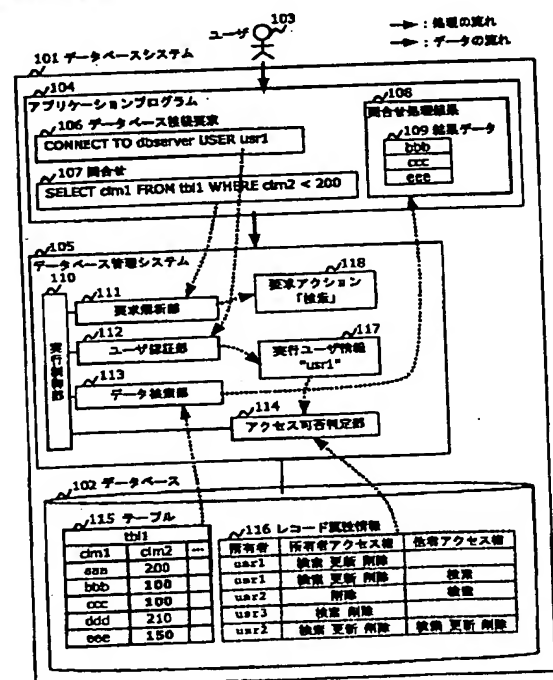 ユーザ 103
→：処理の流れ
→：データの流れ
101 データベースシステム
104
アプリケーションプログラム
106 データベース接続要求
CONNECT TO dbserver USER usr1
107 問合せ
SELECT clm1 FROM tbl1 WHERE clm2 < 200
108
問合せ処理結果
109 結果データ
bbb
ccc
eee
105
データベース管理システム
110
実行制御部
111
要求解析部
112
ユーザ認証部
113
データ検索部
118
要求アクション
「検索」
117
実行ユーザ情報
"usr1"
114
アクセス可否判定部
102 データベース
115 テーブル
tbl1
clm1 clm2 …
aaa 200
bbb 100
ccc 100
ddd 210
eee 150
116 レコード属性情報
所有者 所有者アクセス権 他者アクセス権
usr1 検索 更新 削除
usr1 検索 更新 削除 検索
usr2 削除 検索
usr3 検索 削除
usr2 検索 更新 削除 検索 更新 削除